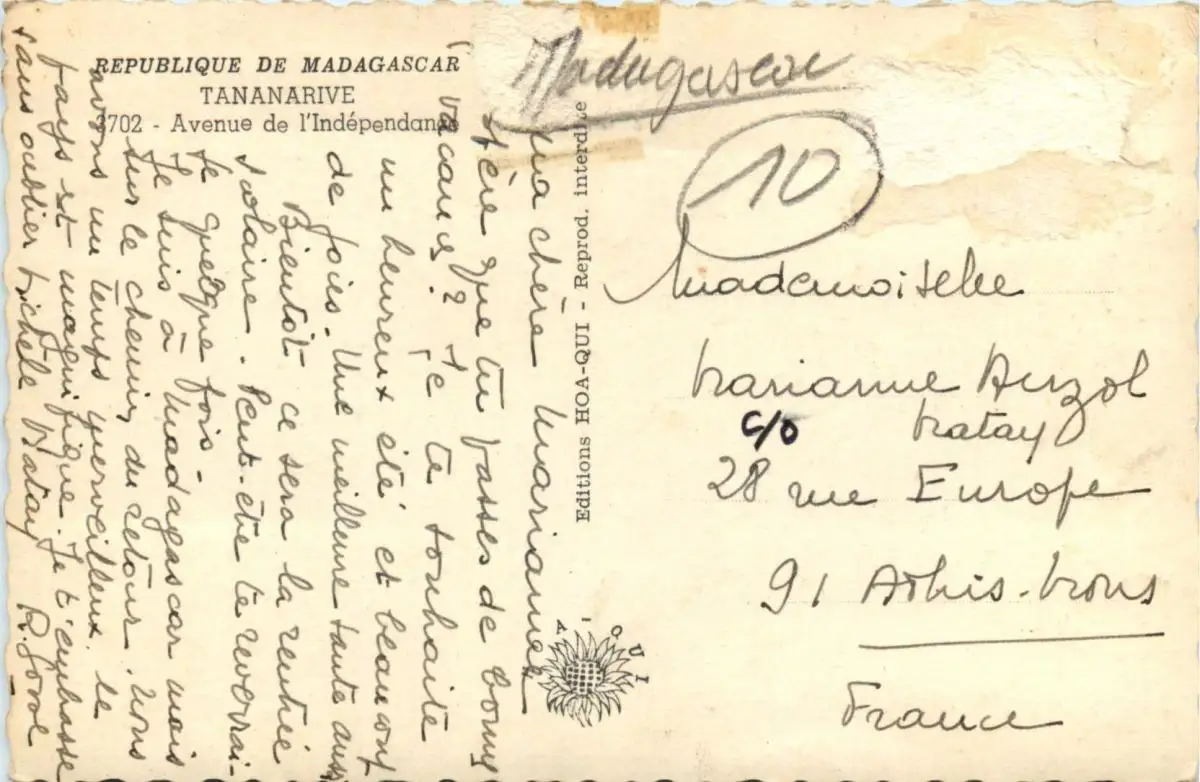 REPUBLIQUE DE MADAGASCAR
TANANARIVE
3702 - Avenue de l'Indépendance
Madagascar
10
Ma chère Marianne
J'espère que tu passes de bonnes
vacances? Je te souhaite
un heureux été et beaucoup
de joies. Une meilleure santé aussi
Bientôt ce sera la rentrée
scolaire. Peut-être te reverrai-
je quelque fois.
Je suis à Madagascar mais
sur le chemin du retour. Nous
avons un temps merveilleux. Le
pays est magnifique. Je t'embrasse
sans oublier Michèle Matay
Editions HOA-QUI - Reprod. interdite
A QUI
Mademoiselle
Marianne
c/o Matay
28 rue Europe
91 Athis-Mons
France